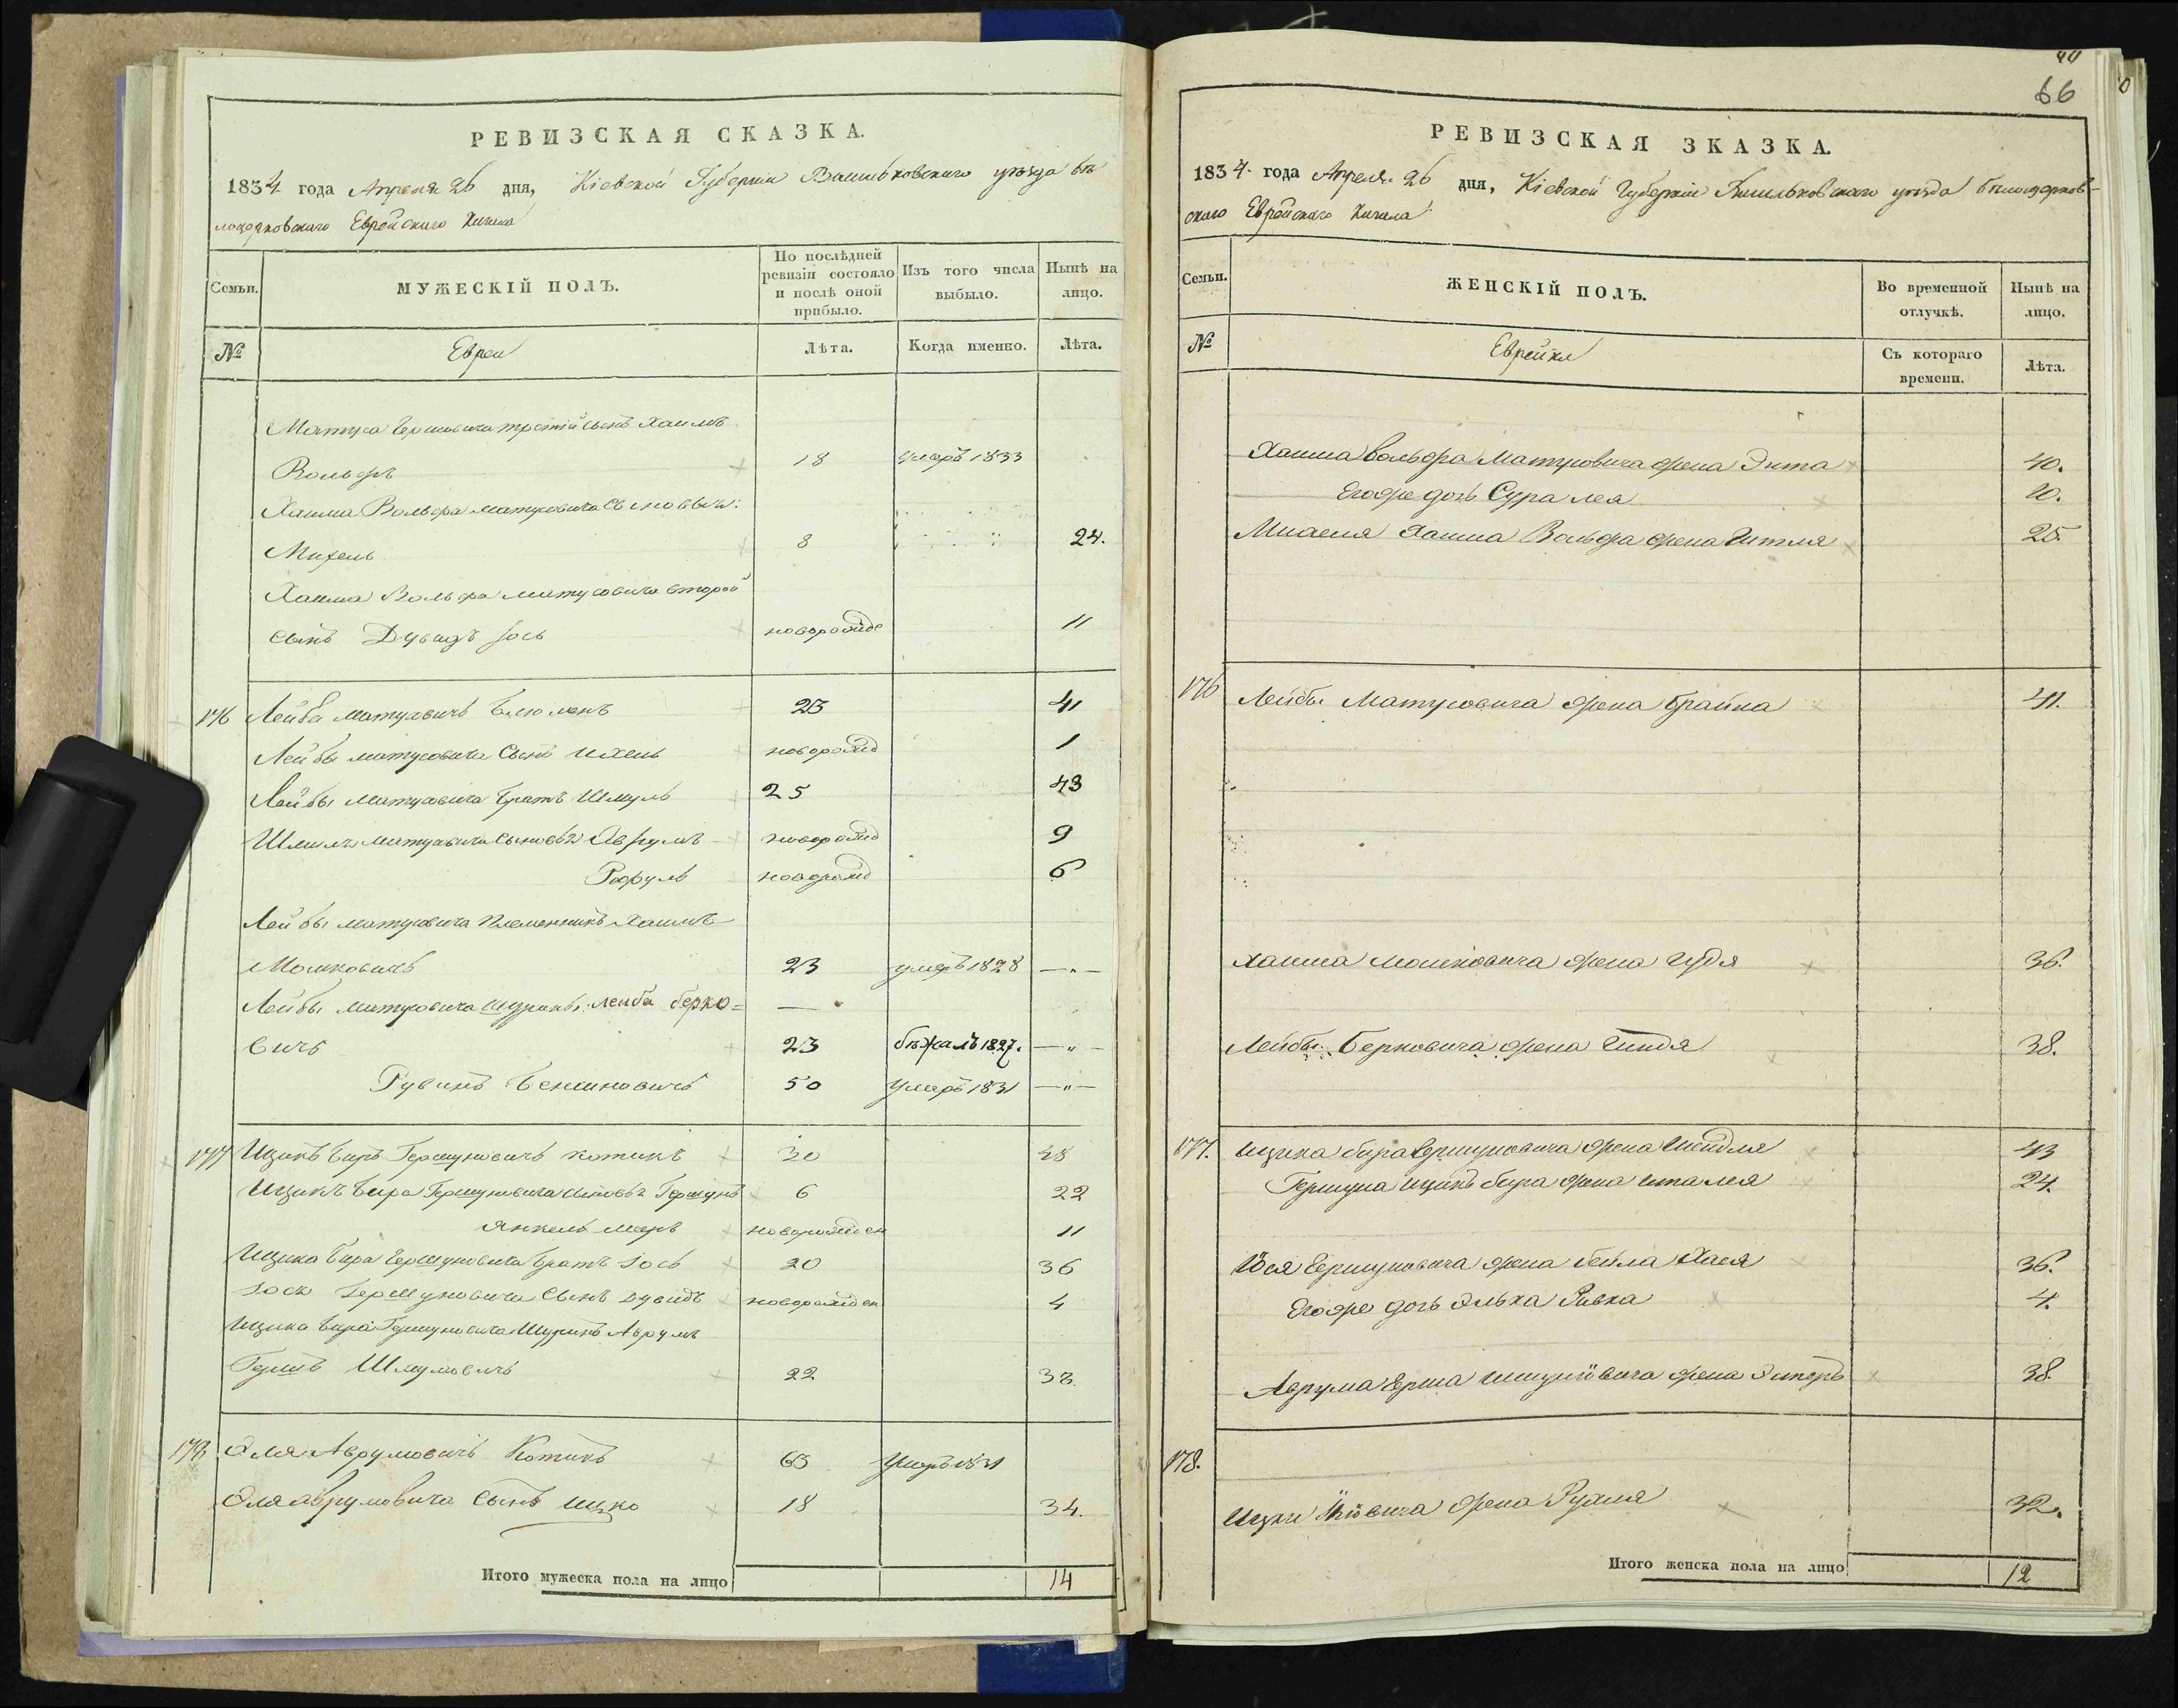 РЕВИЗСКАЯ СКАЗКА.
1834 года Апреля 26 дня, Кіевской Губерніи Васильковскаго уезда бѣ
лоцерковскаго Еврейскаго Кагала
Семьи.
МУЖЕСКІЙ ПОЛЪ.
По послѣдней ревизіи состояло и послѣ оной прибыло.
Изъ того числа выбыло.
Нынѣ на лицо.
№
Евреи
Лѣта.
Когда именно.
Лѣта.
Матуса Бершковича третій сынъ Хаимъ
Вольфъ 18 умеръ 1833
Хаима Вольфа Матусовича Сыновья:
Михель 8 24.
Хаима Вольфа Матусовича второй
сынъ Дувидъ Іось новорожде 11
176 Лейба Матусовичъ 23 41
Лейбы Матусовича Сынъ Ихель новорожд 1
Лейбы Матусовича Братъ Шмуль 25 43
Шмуля Матусовича Сыновья Аврумъ новорожд 9
Рафуль новорожд 6
Лейбы Матусовича племенникъ Хаимъ
Мошковичъ 23 умеръ 1828 —„—
Лейбы Матусовича Шуринъ, Лейба Берко=
вичъ 23 бѣжалъ 1827. —„—
Рувинъ Беньиновичъ 50 Умеръ 1831 —„—
177 Ицикъ Биръ Гершуновичъ Котикъ 30 48
Ицика Бира Гершуновича Сыновья Гершунъ 6 22
Янкель Меръ новорожден 11
Ицика Бира Гершуновича братъ Іось 20 36
Іося Гершуновича Сынъ Дувидъ новорожден 4
Ицика Бира Гершуновича Шуринъ Аврумъ
Гершъ Шмулевичъ 22 38.
178 Эля Аврумовичъ Котикъ 65 Умеръ 1831
Эля Аврумовича Сынъ Ицко 18 34.
Итого мужеска пола на лицо 14
40
66
РЕВИЗСКАЯ ЗКАЗКА.
1834. года Апреля 26 дня, Кіевской Губерніи Васильковскаго уезда бѣлоцерков-
скаго Еврейскаго Кагала
Семьи.
ЖЕНСКІЙ ПОЛЪ.
Во временной отлучкѣ.
Нынѣ на лицо.
№
Еврейки
Съ котораго времени.
Лѣта.
Хаима Вольфа Матусовича жена Энта 40.
Егоже дочь Сура Лея 10.
Михеля Хаима Вольфа жена Итля 25.
176 Лейбы Матусовича жена Брайна 41.
Хаима Мошковича жена Гудя 36.
Лейбы Берковича жена Гиндя 38.
177. Ицика Бира Гершуновича жена Шейдля 43
Гершуна Ицика Бира жена 24.
Іося Гершуновича жена Бейла Хася 36.
Егоже дочь Элька Ривка 4.
Аврума Герша жена Эстеръ 38.
178.
Ицки жена Рухля 32.
Итого женска пола на лицо 12